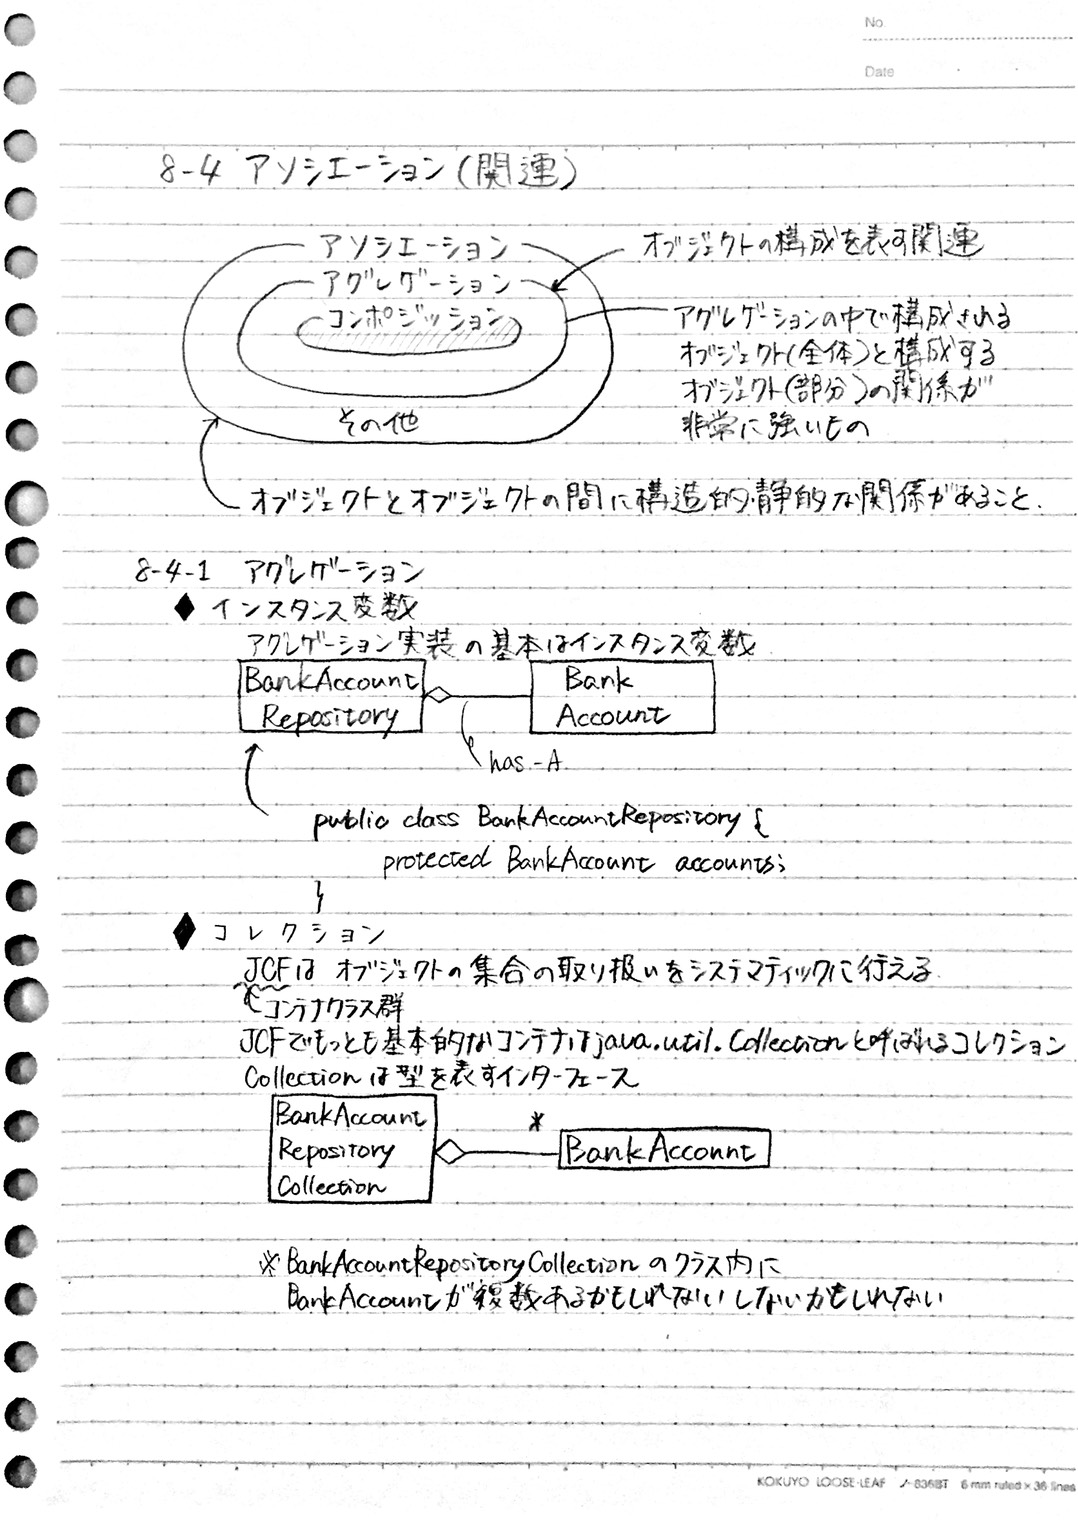 No.
Date
8-4 アソシエーション(関連)
アソシエーション
オブジェクトの構成を表す関連
アグレゲーション
コンポジッション
アグレゲーションの中で構成される
オブジェクト(全体)と構成する
オブジェクト(部分)の関係が
非常に強いもの
その他
オブジェクトとオブジェクトの間に構造的・静的な関係があること.
8-4-1 アグレゲーション
◆ インスタンス変数
アグレゲーション実装の基本はインスタンス変数
BankAccount
Repository
Bank
Account
has-A
public class BankAccountRepository {
protected BankAccount accounts;
}
◆ コレクション
JCFは オブジェクトの集合の取り扱いをシステマティックに行える
コンテナクラス群
JCFでもっとも基本的なコンテナはjava.util.Collectionと呼ばれるコレクション
Collectionは型を表すインターフェース
BankAccount
Repository
Collection
*
BankAccount
※BankAccountRepositoryCollectionのクラス内に
BankAccountが複数あるかもしれないしないかもしれない
KOKUYO LOOSE-LEAF ノ-836BT 6 mm ruled × 36 lines